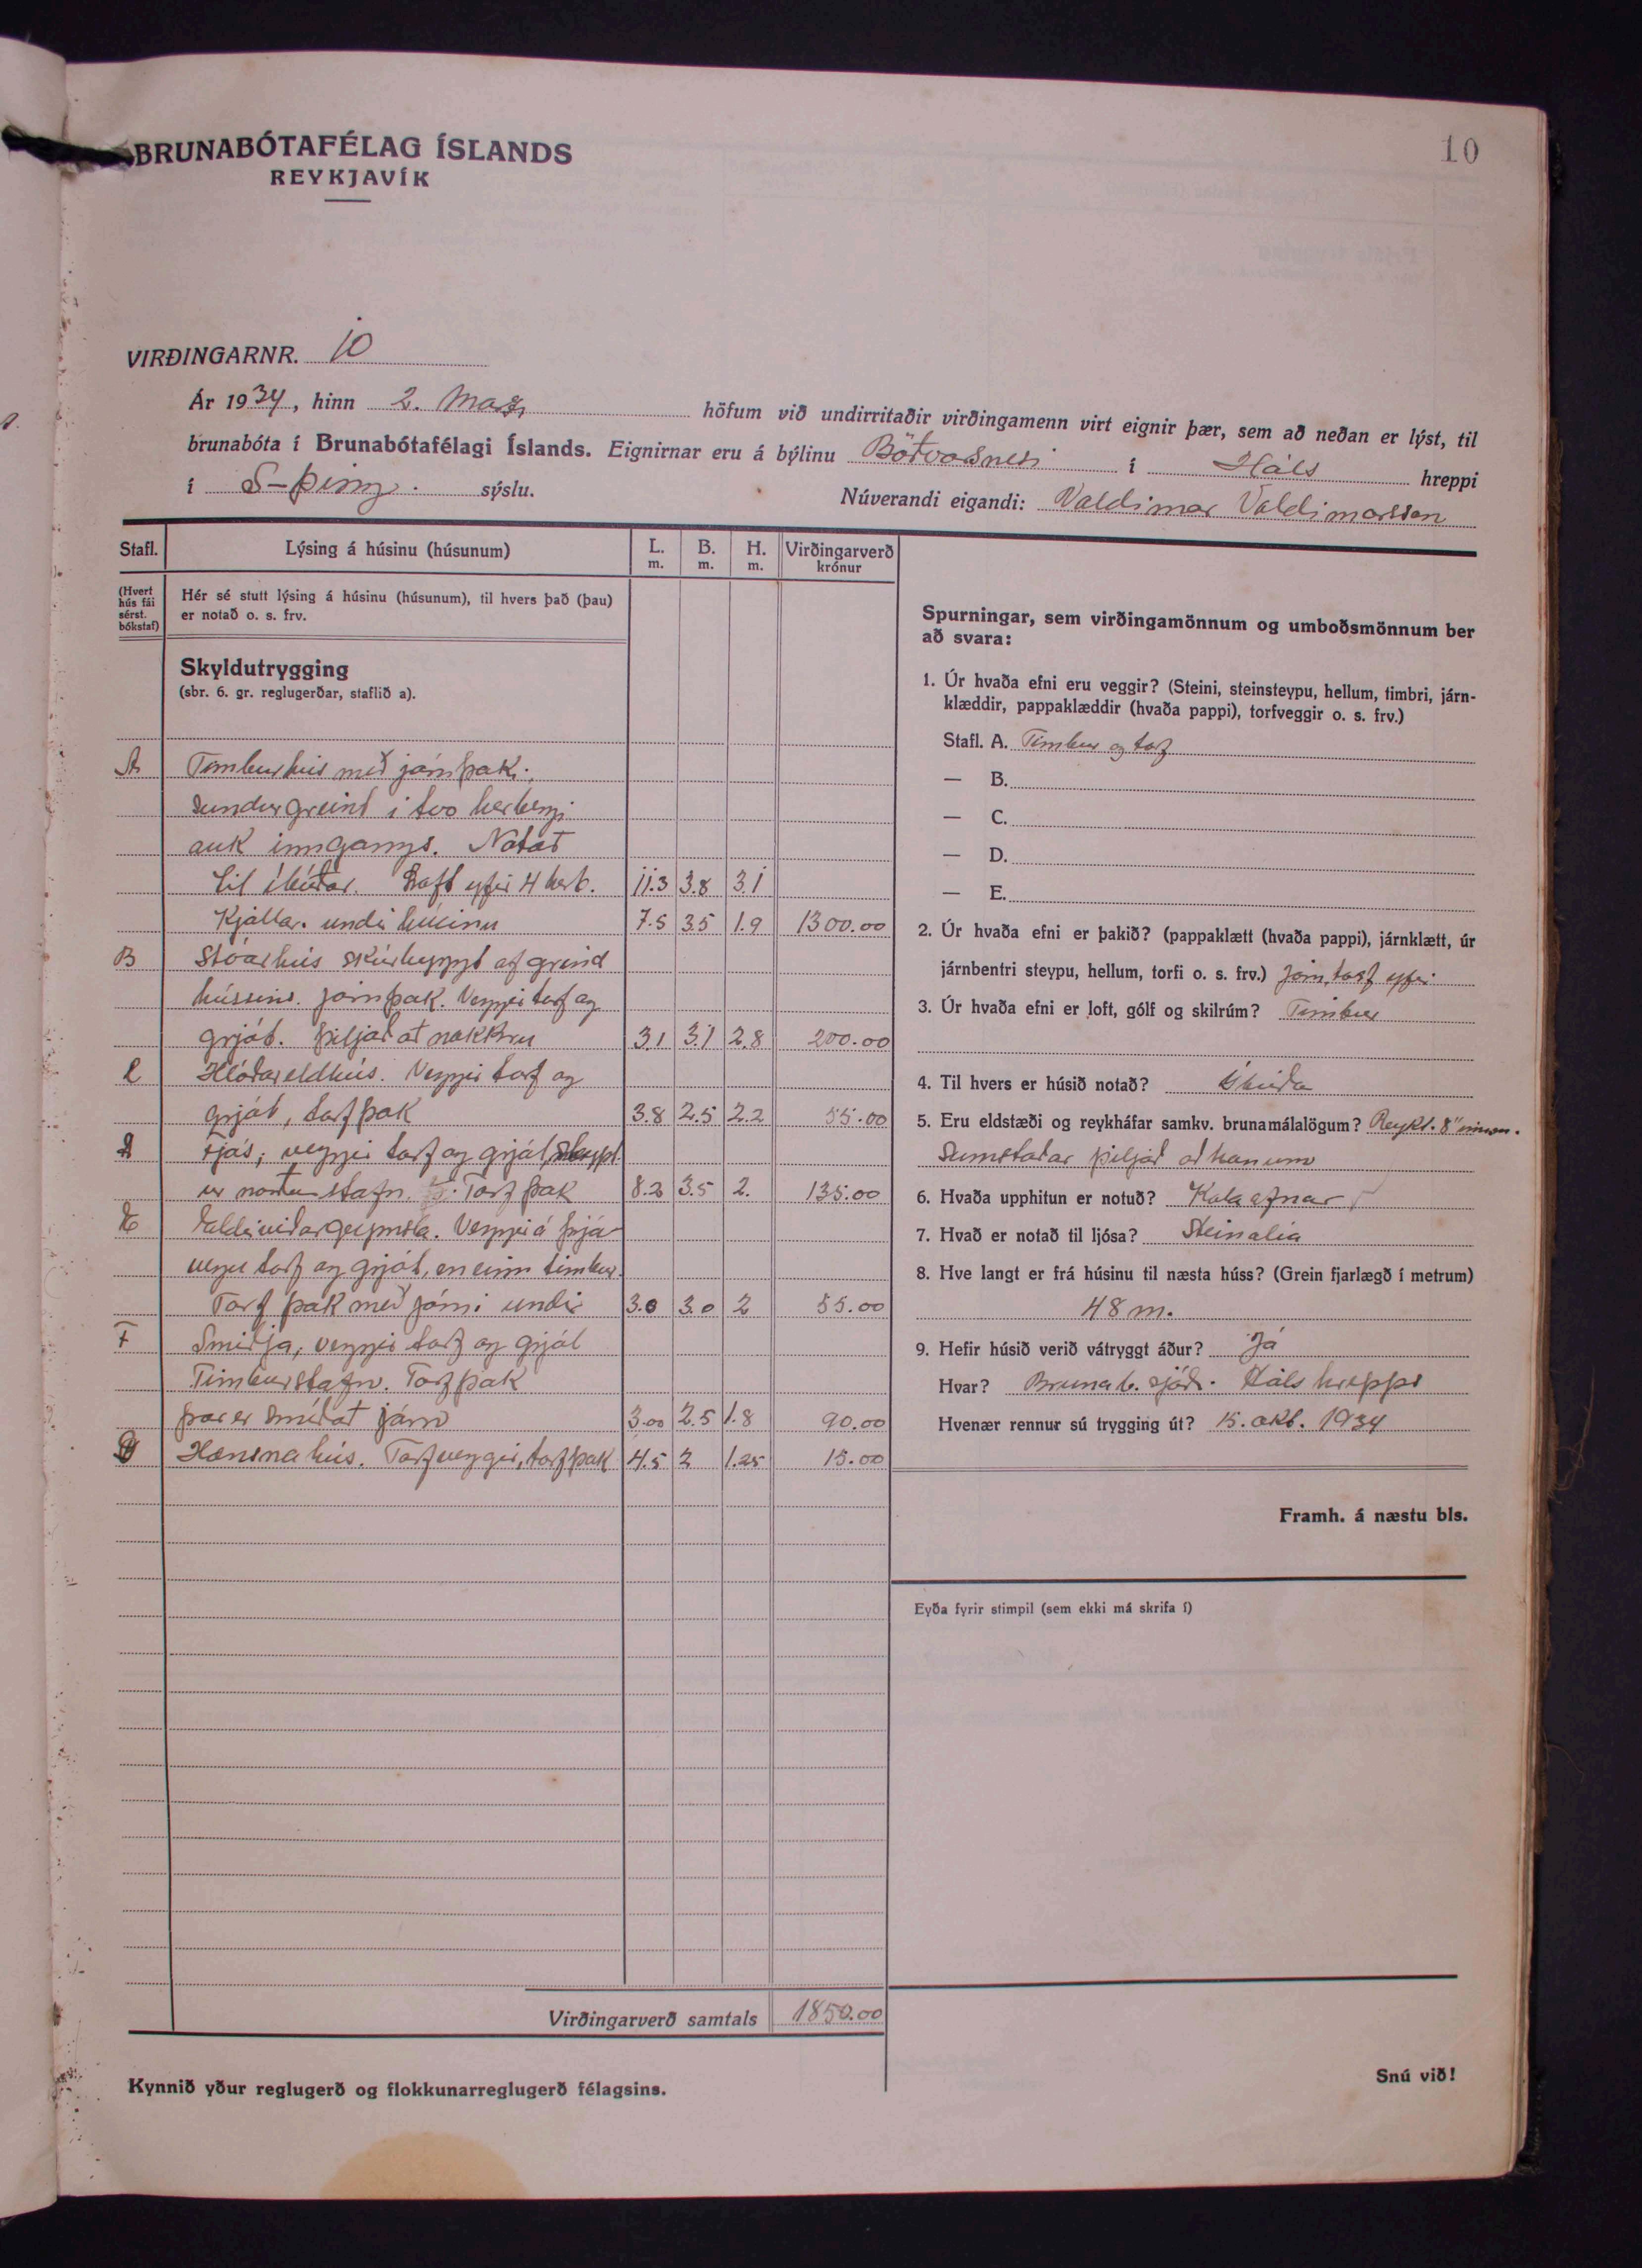 10
BRUNABÓTAFÉLAG ÍSLANDS
REYKJAVÍK
VIRÐINGARNR. 10
Ár 1934, hinn 2. Marz höfum við undirritaðir virðingamenn virt eignir þær, sem að neðan er lýst, til
brunabóta í Brunabótafélagi Íslands. Eignirnar eru á býlinu Böðvarsnesi í Háls hreppi
í S-Þing. sýslu. Núverandi eigandi: Valdimar Valdimarsson
Stafl. Lýsing á húsinu (húsunum) L. m. B. m. H. m. Virðingarverð krónur
(Hvert hús fái sérst. bókstaf)
Hér sé stutt lýsing á húsinu (húsunum), til hvers það (þau)
er notað o. s. frv.
Skyldutrygging
(sbr. 6. gr. reglugerðar, staflið a).
A Timburhús með járnþaki,
sundurgreint í tvo herbergi
auk inngangs. Notað
til íbúðar. Loft yfir 4 herb. 11.3 3.8 3.1
Kjallar. undir húsinu 7.5 3.5 1.9 1300.00
B Stóarhús skúrbyggt af grind
hússins. Járnþak. Veggir torf og
grjót. Þiljað að nokkru 3.1 3.1 2.8 200.00
C Hlóðareldhús. Veggir torf og
grjót, torfþak 3.8 2.5 2.2 55.00
D Fjós, veggir torf og grjót,
er norðurstafn. Torfþak 8.2 3.5 2. 135.00
E Eldiviðargeymsla. Veggir á þrjá
vegu torf og grjót, en einn timbur.
Torfþak með járni undir 3.0 3.0 2 55.00
F Smiðja, veggir torf og grjót
Timburstafn. Torfþak
þar er smíðað járn 3.00 2.5 1.8 90.00
Hænsnahús. Torfveggir, torfþak 4.5 2 1.25 15.00
Virðingarverð samtals 1850.00
Kynnið yður reglugerð og flokkunarreglugerð félagsins.
Spurningar, sem virðingamönnum og umboðsmönnum ber
að svara:
1. Úr hvaða efni eru veggir? (Steini, steinsteypu, hellum, timbri, járn-
klæddir, pappaklæddir (hvaða pappi), torfveggir o. s. frv.)
Stafl. A. Timbur og torf
— B.
— C.
— D.
— E.
2. Úr hvaða efni er þakið? (pappaklætt (hvaða pappi), járnklætt, úr
járnbentri steypu, hellum, torfi o. s. frv.) Járn, torf yfir
3. Úr hvaða efni er loft, gólf og skilrúm? Timbur
4. Til hvers er húsið notað? Íbúða
5. Eru eldstæði og reykháfar samkv. brunamálalögum? Reykh. 8"
Sumstaðar þiljað að honum
6. Hvaða upphitun er notuð? Kolaofnar
7. Hvað er notað til ljósa? Steinolía
8. Hve langt er frá húsinu til næsta húss? (Grein fjarlægð í metrum)
48 m.
9. Hefir húsið verið vátryggt áður? Já
Hvar? Brunab. sjóði. Háls hreppi
Hvenær rennur sú trygging út? 15. okt. 1934
Framh. á næstu bls.
Eyða fyrir stimpil (sem ekki má skrifa í)
Snú við!